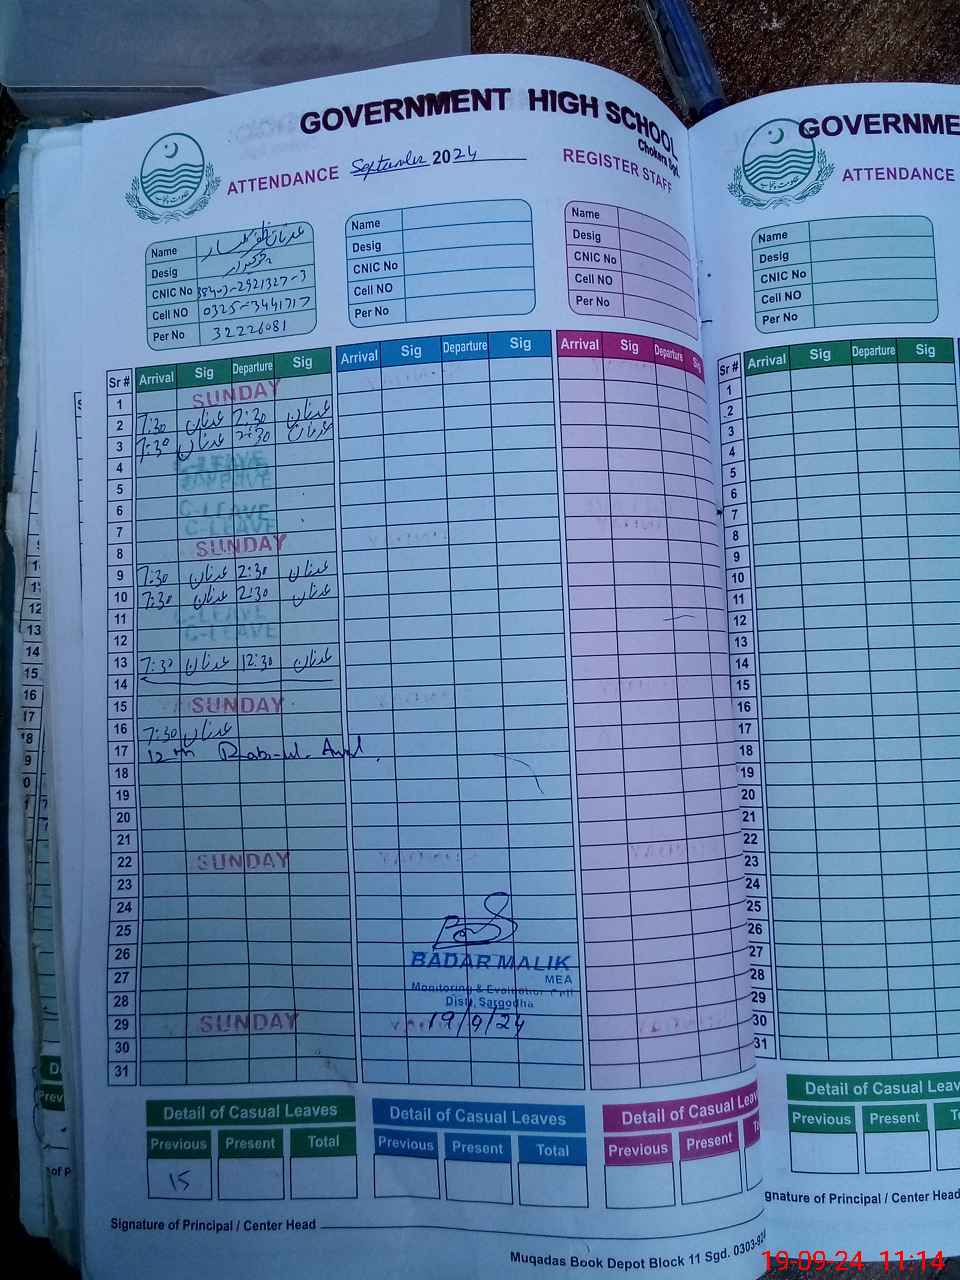 GOVERNMENT HIGH SCHOOL
Chokera Sgd.
ATTENDANCE September 2024 REGISTER STAFF
Name عدنان
Desig
CNIC No 38403-2921327-3
Cell NO 0325-3441717
Per No 32226081
Name
Desig
CNIC No
Cell NO
Per No
Name
Desig
CNIC No
Cell NO
Per No
Sr # Arrival Sig Departure Sig Arrival Sig Departure Sig Arrival Sig Departure Sig
1 SUNDAY
2 7:30 عدنان 2:30 عدنان
3 7:30 عدنان 2:30 عدنان
4 C-LEAVE
5
6 C-LEAVE
7 C-LEAVE
8 SUNDAY
9 7:30 عدنان 2:30 عدنان
10 7:30 عدنان 2:30 عدنان
11 C-LEAVE
12 C-LEAVE
13 7:30 عدنان 12:30 عدنان
14
15 SUNDAY
16 7:30 عدنان
17 12th Rabi-ul-Awal.
18
19
20
21
22 SUNDAY
23
24
25
26
27
28
29 SUNDAY
30
31
BADAR MALIK
MEA
Monitoring & Evaluation Cell
Distt. Sargodha
19/9/24
Detail of Casual Leaves
Previous Present Total
15
Detail of Casual Leaves
Previous Present Total
Detail of Casual Leav
Previous Present
Signature of Principal / Center Head
Muqadas Book Depot Block 11 Sgd. 0303-924
GOVERNME
ATTENDANCE
Name
Desig
CNIC No
Cell NO
Per No
Sr # Arrival Sig Departure Sig
1
2
3
4
5
6
7
8
9
10
11
12
13
14
15
16
17
18
19
20
21
22
23
24
25
26
27
28
29
30
31
Detail of Casual Lea
Previous Present
gnature of Principal / Center Head
19-09-24 11:14